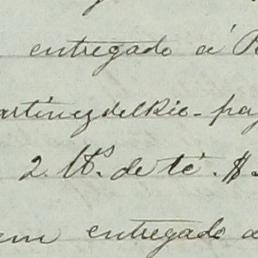 entregado á
artinez del Rio - pa
2 lbs. de té. $
em entregado a